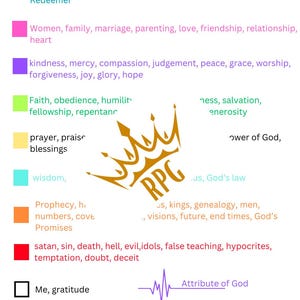 Redeemer
Women, family, marriage, parenting, love, friendship, relationship,
heart
kindness, mercy, compassion, judgement, peace, grace, worship,
forgiveness, joy, glory, hope
Faith, obedience, humility salvation,
fellowship,
prayer, of God,
blessings
RPG
wisdom, God's law
Prophecy, kings, genealogy, men,
numbers, visions, future, end times, God's
Promises
satan, sin, death, hell, evil,idols, false teaching, hypocrites,
temptation, doubt, deceit
Me, gratitude
Attribute of God